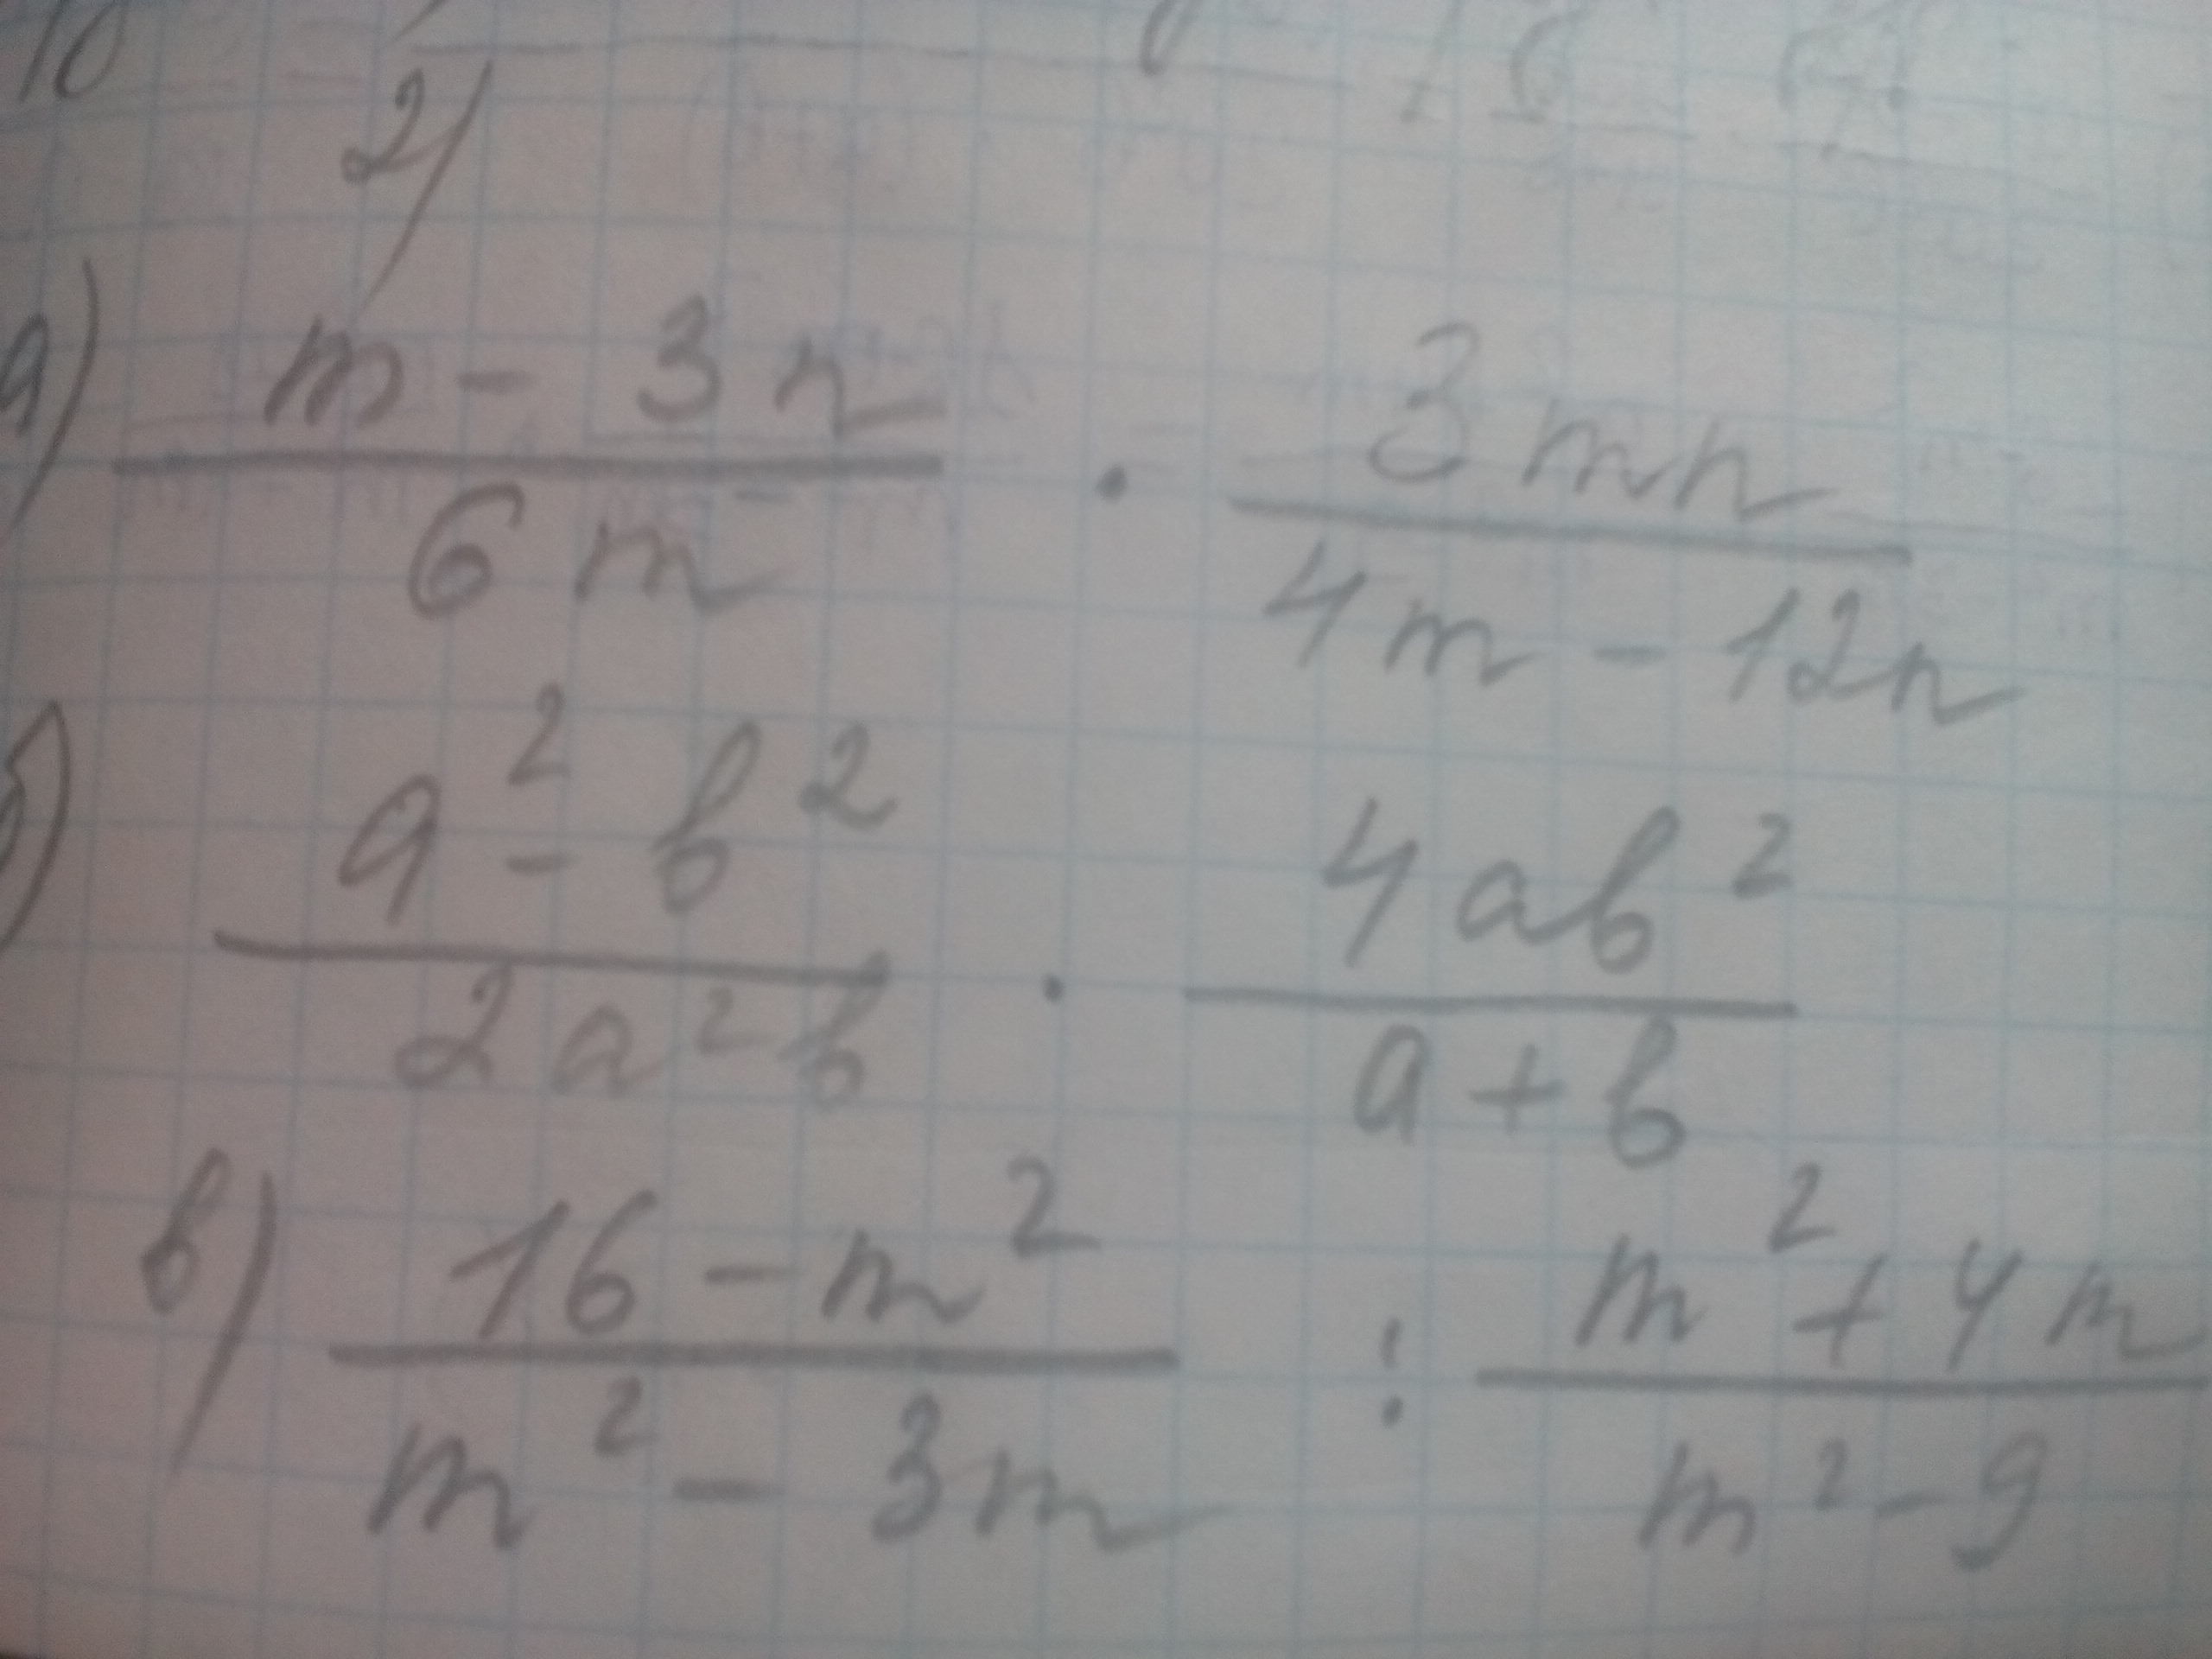 10
2)
а) (m - 3n)/(6m) · (3mn)/(4m - 12n)
б) (a² - b²)/(2a²b) · (4ab²)/(a + b)
в) (16 - m²)/(m² - 3m) : (m² + 4m)/(m² - 9)